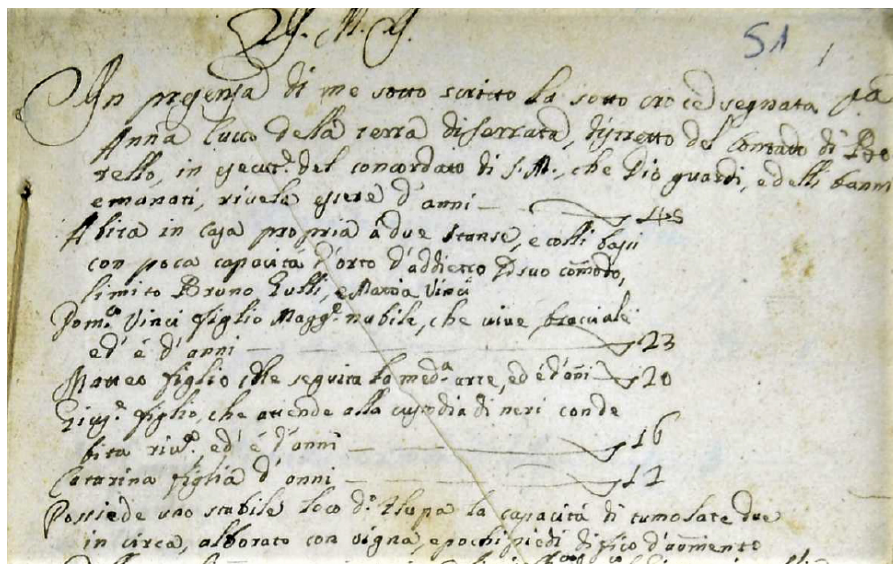 J. M. J.
51
In presenza di me sotto scritto la sotto croce segnata
Anna Cucco della terra di Serrata, distretto del Contado di Bo
rello, in esecut.e del concordato di S. M., che Dio guardi, e delli banni
emanati, rivela essere d'anni 48
Abita in casa propria à due stanse, e colli bassi
con poca capacità d'orto d'addietro suo comodo,
limito Bruno Gulli, e Mattia Vinci
Dom.co Vinci figlio Magg.e nubile, che vive bracciale
ed' é d'anni 23
Matteo figlio che seguita la med.a arte, ed é d'anni 20
Gius.e figlio, che attende alla custodia di neri conde
ed' é d'anni 16
Catarina figlia d'anni 12
Possiede uno stabile loco d.o la capacità di tumolate due
in circa, alborato con vigna, e pochi piedi di fico d'